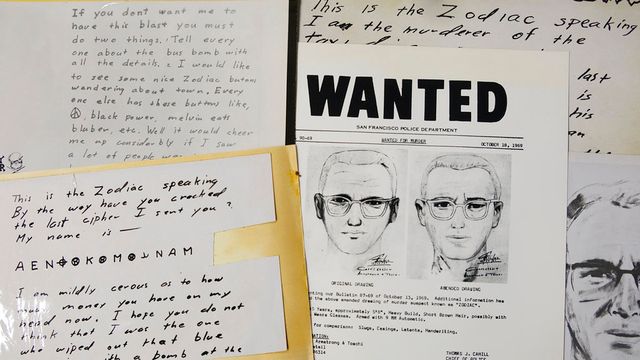 If you dont want me to
have this blast you must
do two things. Tell every
one about the bus bomb with
all the details. 2 I would like
to see some nice Zodiac butons
wandering about town. Every
one else has these buttons like,
☮, black power, melvin eats
bluber, etc. Well it would cheer
me up considerably if I saw
a lot of people
This is the Zodiac speaking
I am the murderer of the
last
is
his
an
This is the Zodiac speaking
By the way have you cracked
the last cipher I sent you?
My name is —
AEN⊕⊗KⓂ⊗⅃NAM
I am mildly cerous as to how
much money you have on my
head now. I hope you do not
think that I was the one
who wiped out that blue
with a bomb at the
WANTED
SAN FRANCISCO POLICE DEPARTMENT
90-69
WANTED FOR MURDER
OCTOBER 18, 1969
ORIGINAL DRAWING
AMENDED DRAWING
ting our Bulletin 87-69 of October 13, 1969. Additional information has
the above amended drawing of murder suspect known as "ZODIAC".
Years, approximately 5'8", Heavy Build, Short Brown Hair, possibly with
Wears Glasses. Armed with 9 MM Automatic.
for comparison: Slugs, Casings, Latents, Handwriting.
Armstrong & Toschi
THOMAS J. CAHILL
CHIEF OF POLICE